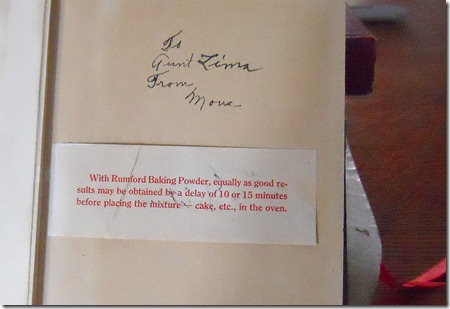 To
Aunt Zima
From
Mona
With Rumford Baking Powder, equally as good re-
sults may be obtained by a delay of 10 or 15 minutes
before placing the mixture — cake, etc., in the oven.